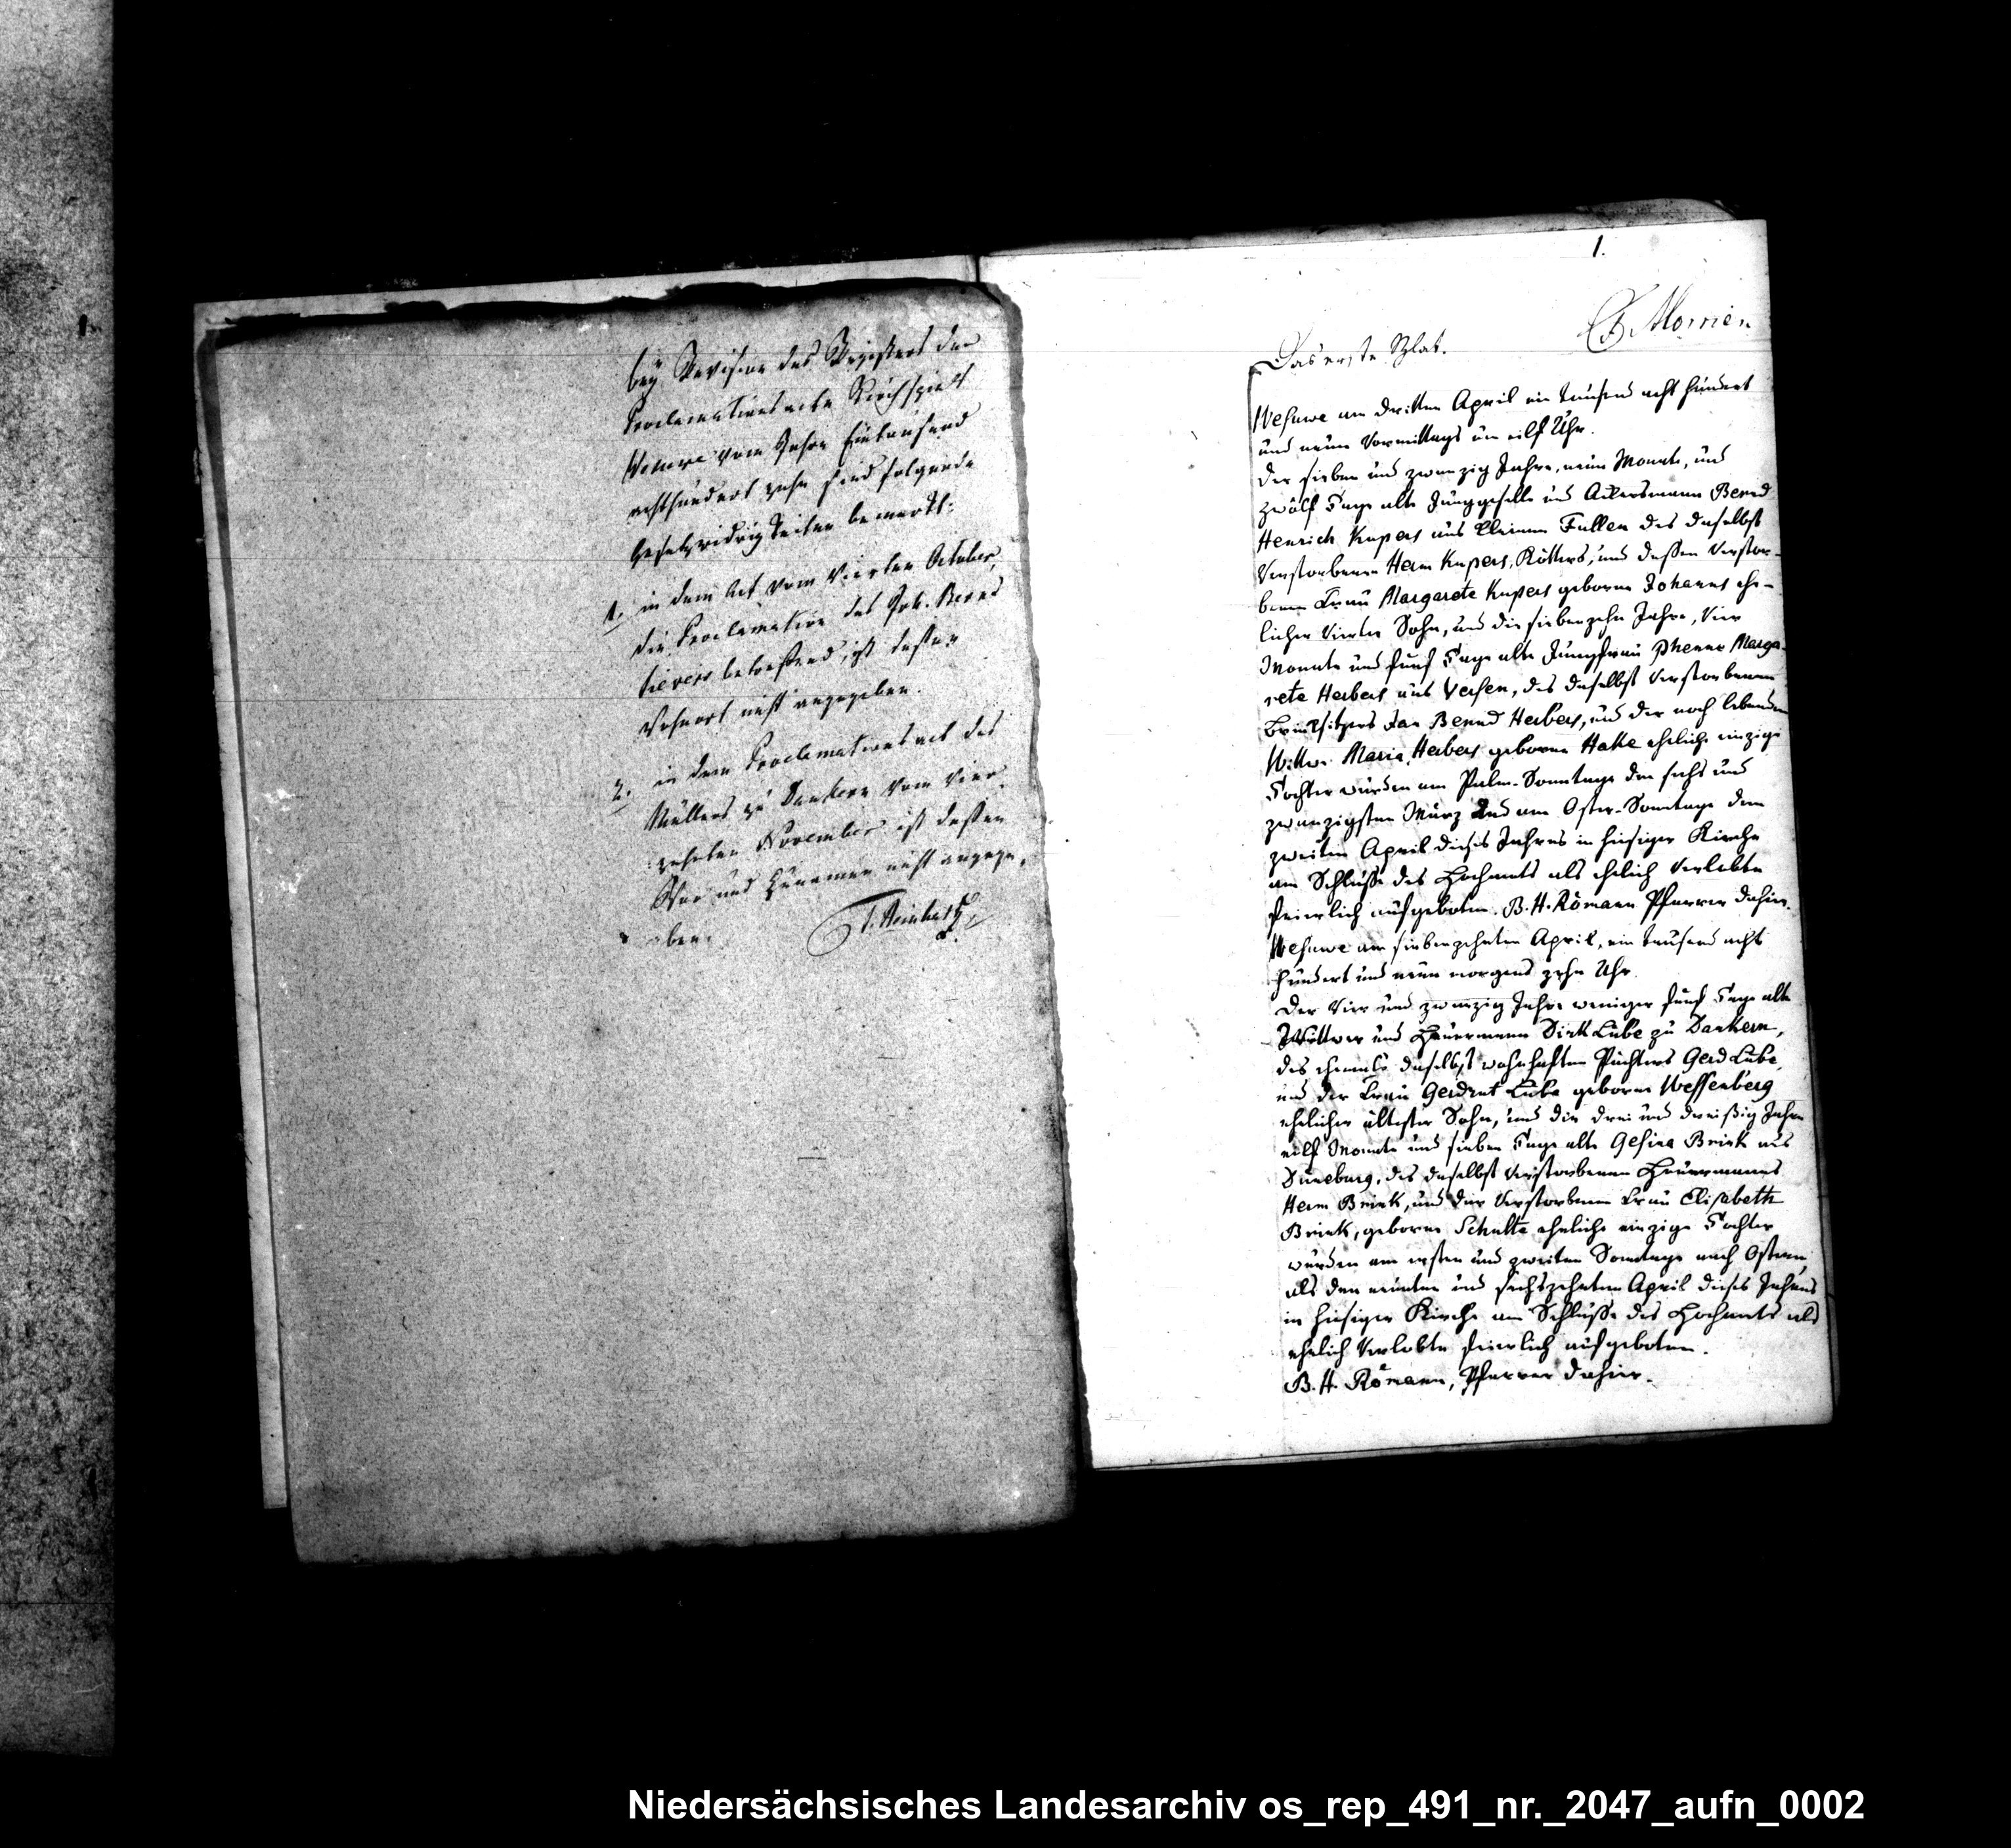 bey Revision des Registers der
Proclamationsacte Kirchspiels
Wesuwe vom Jahre Eintausend
achthundert zehn sind folgende
Gesetzwidrigkeiten bemerkt:
1. in dem Act vom Vierten October,
die Proclamation des Joh. Bernd
Sievers betreffend, ist dessen
Wohnort nicht angegeben.
2. in dem Proclamationsact des
Müllers zu Dankern vom Vier-
zehnten November ist dessen
Vor und Zunamen nicht angege-
ben.
1.
Das erste Blat.
Wesuwe am dritten April ein tausend acht hundert
und neun Vormittags um eilf Uhr.
Der sieben und zwanzig Jahre, neun Monate, und
zwölf Tage alte Junggeselle und Ackersmann Bernd
Henrich Kupers aus Kleinen Fullen des daselbst
Verstorbenen Herm Kupers, Kötters, und dessen Verstor-
benen Frau Margarete Kupers geborne Johanns ehe-
licher Vierter Sohn, und die siebenzehn Jahre, Vier
Monate und fünf Tage alte Jungfrau Phenne Marga-
rete Herbers aus Versen, des daselbst Verstorbenen
Brinksitzers Jan Bernd Herbers, und der noch lebenden
Wittwe Maria Herbers geborne Hake eheliche einzige
Tochter wurden am Palm-Sonntage den sechs und
zwanzigsten März und am Oster-Sonntage den
zweiten April dieses Jahres in hiesiger Kirche
am Schlusse des Hochamts als ehelich Verlobte
feierlich aufgeboten. B. H. Römann Pfarrer dahier.
Wesuwe am siebenzehnten April, ein tausend acht
hundert und neun morgens zehn Uhr.
Der Vier und zwanzig Jahre weniger fünf Tage alte
Wittwer und Heuermann Dirk Lübe zu Dankern,
des ehemals daselbst wohnhaften Pächters Gerd Lübe,
und der Frau Gerdrut Lübe geborne Wessenberg
ehelicher ältester Sohn, und die drei und dreißig Jahre
eilf Monate und sieben Tage alte Gesina Brink aus
Düneburg, des daselbst Verstorbenen Heuermanns
Herm Brink, und der Verstorbenen Frau Elisabeth
Brink, geborne Schulte eheliche einzige Tochter
wurden am ersten und zweiten Sonntage nach Ostern
als den neunten und sechszehnten April dieses Jahres
in hiesiger Kirche am Schlusse des Hochamts als
ehelich Verlobte feierlich aufgeboten.
B. H. Römann, Pfarrer dahier.
Niedersächsisches Landesarchiv os_rep_491_nr._2047_aufn_0002